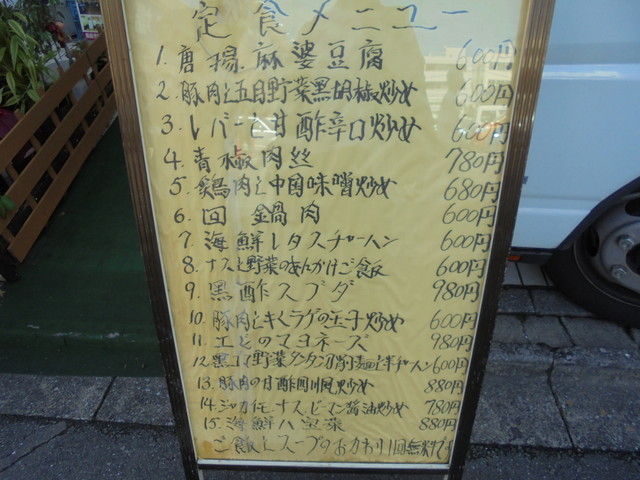 定食メニュー
1. 唐揚麻婆豆腐 600円
2. 豚肉と五目野菜黒胡椒炒め 600円
3. レバーと甘酢辛口炒め 600円
4. 青椒肉丝 780円
5. 鶏肉と中国味噌炒め 680円
6. 回鍋肉 600円
7. 海鮮レタスチャーハン 600円
8. ナスと野菜のあんかけご飯 600円
9. 黒酢スブタ 980円
10. 豚肉とキクラゲの玉子炒め 600円
11. エビのマヨネーズ 980円
12. 黒ゴマ野菜タンタン刀削麺と半チャーハン 600円
13. 豚肉の甘酢四川風炒め 880円
14. ジャガイモナスピーマン醤油炒め 780円
15. 海鮮八宝菜 880円
ご飯とスープのおかわり1回無料です